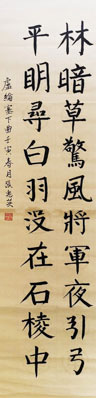 林暗草驚風將軍夜引弓
平明尋白羽沒在石棱中
盧綸塞下曲壬寅春月